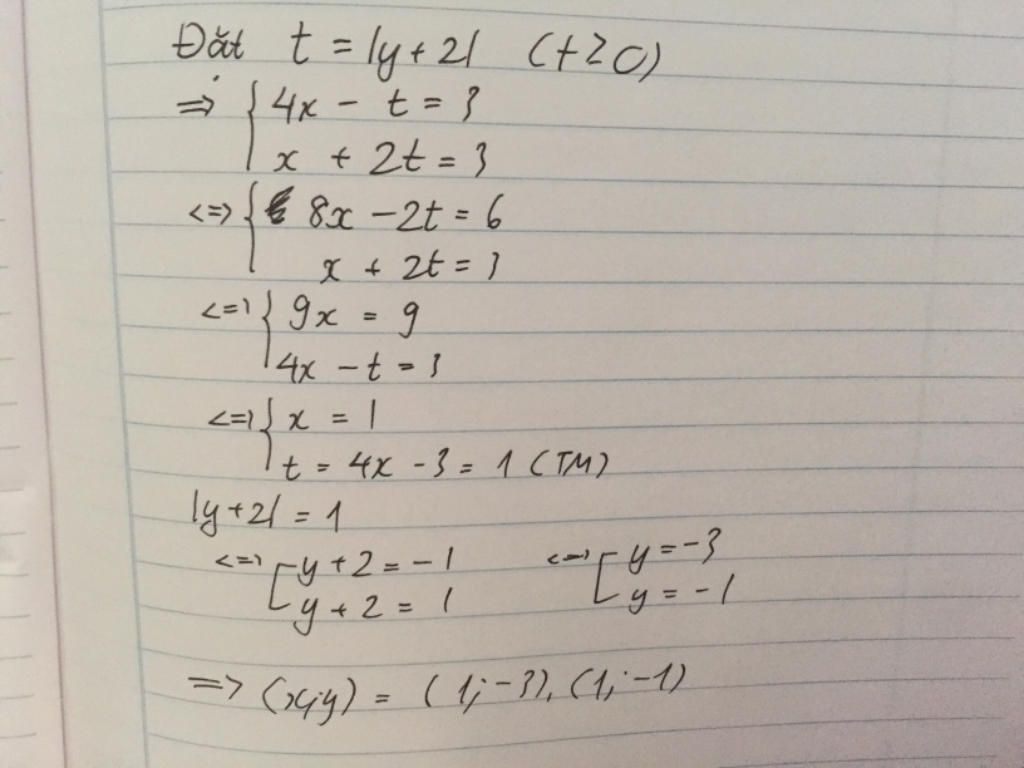 Đặt t = |y+2| (t≥0)
=> { 4x - t = 3
x + 2t = 3
<=> { 8x - 2t = 6
x + 2t = 3
<=> { 9x = 9
4x - t = 3
<=> { x = 1
t = 4x - 3 = 1 (TM)
|y+2| = 1
<=> [ y + 2 = -1 <=> [ y = -3
y + 2 = 1 y = -1
=> (x;y) = (1;-3), (1;-1)